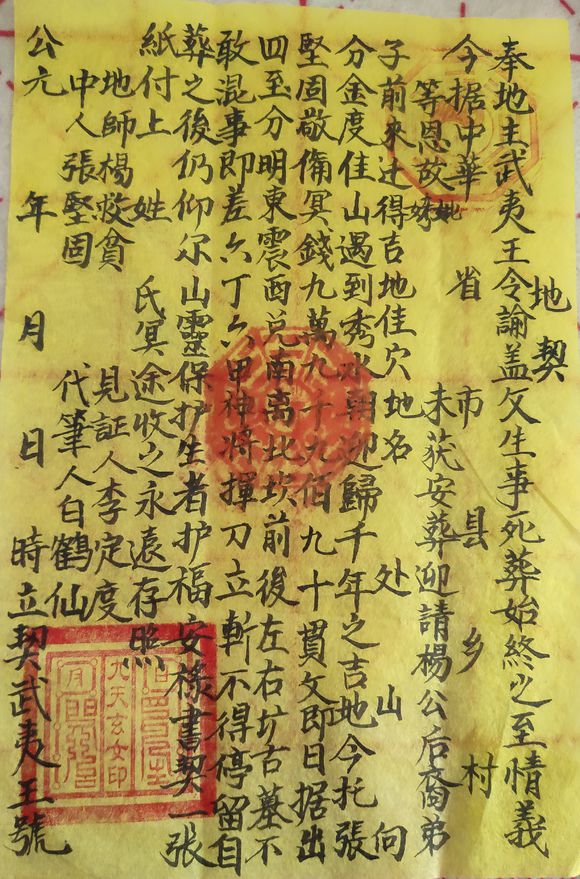 地契
奉地主武夷王令諭盖攵生事死葬始终之至情義
今据中華 省 市 县 乡 村
等恩故 妣 未获安葬迎請楊公后裔弟
子前來迁得吉地佳穴地名 处 山 向
分金度佳山遇到秀水朝迎歸千年之吉地今托張
堅固敬俻冥錢九萬九千九佰九十貫文即日据出
四至分明東震西兑南离北坎前後左右圹古墓不
敢混事即差六丁六甲神将揮刀立斬不得停留自
葬之後仍仰尔山靈保护生者护福安祿書契一張
紙付上 姓 氏冥途收之永遠存照
地師楊救貧 見証人李定度
中人張堅固 代筆人白鶴仙
公元 年 月 日 時立契武夷王號
九天玄女印